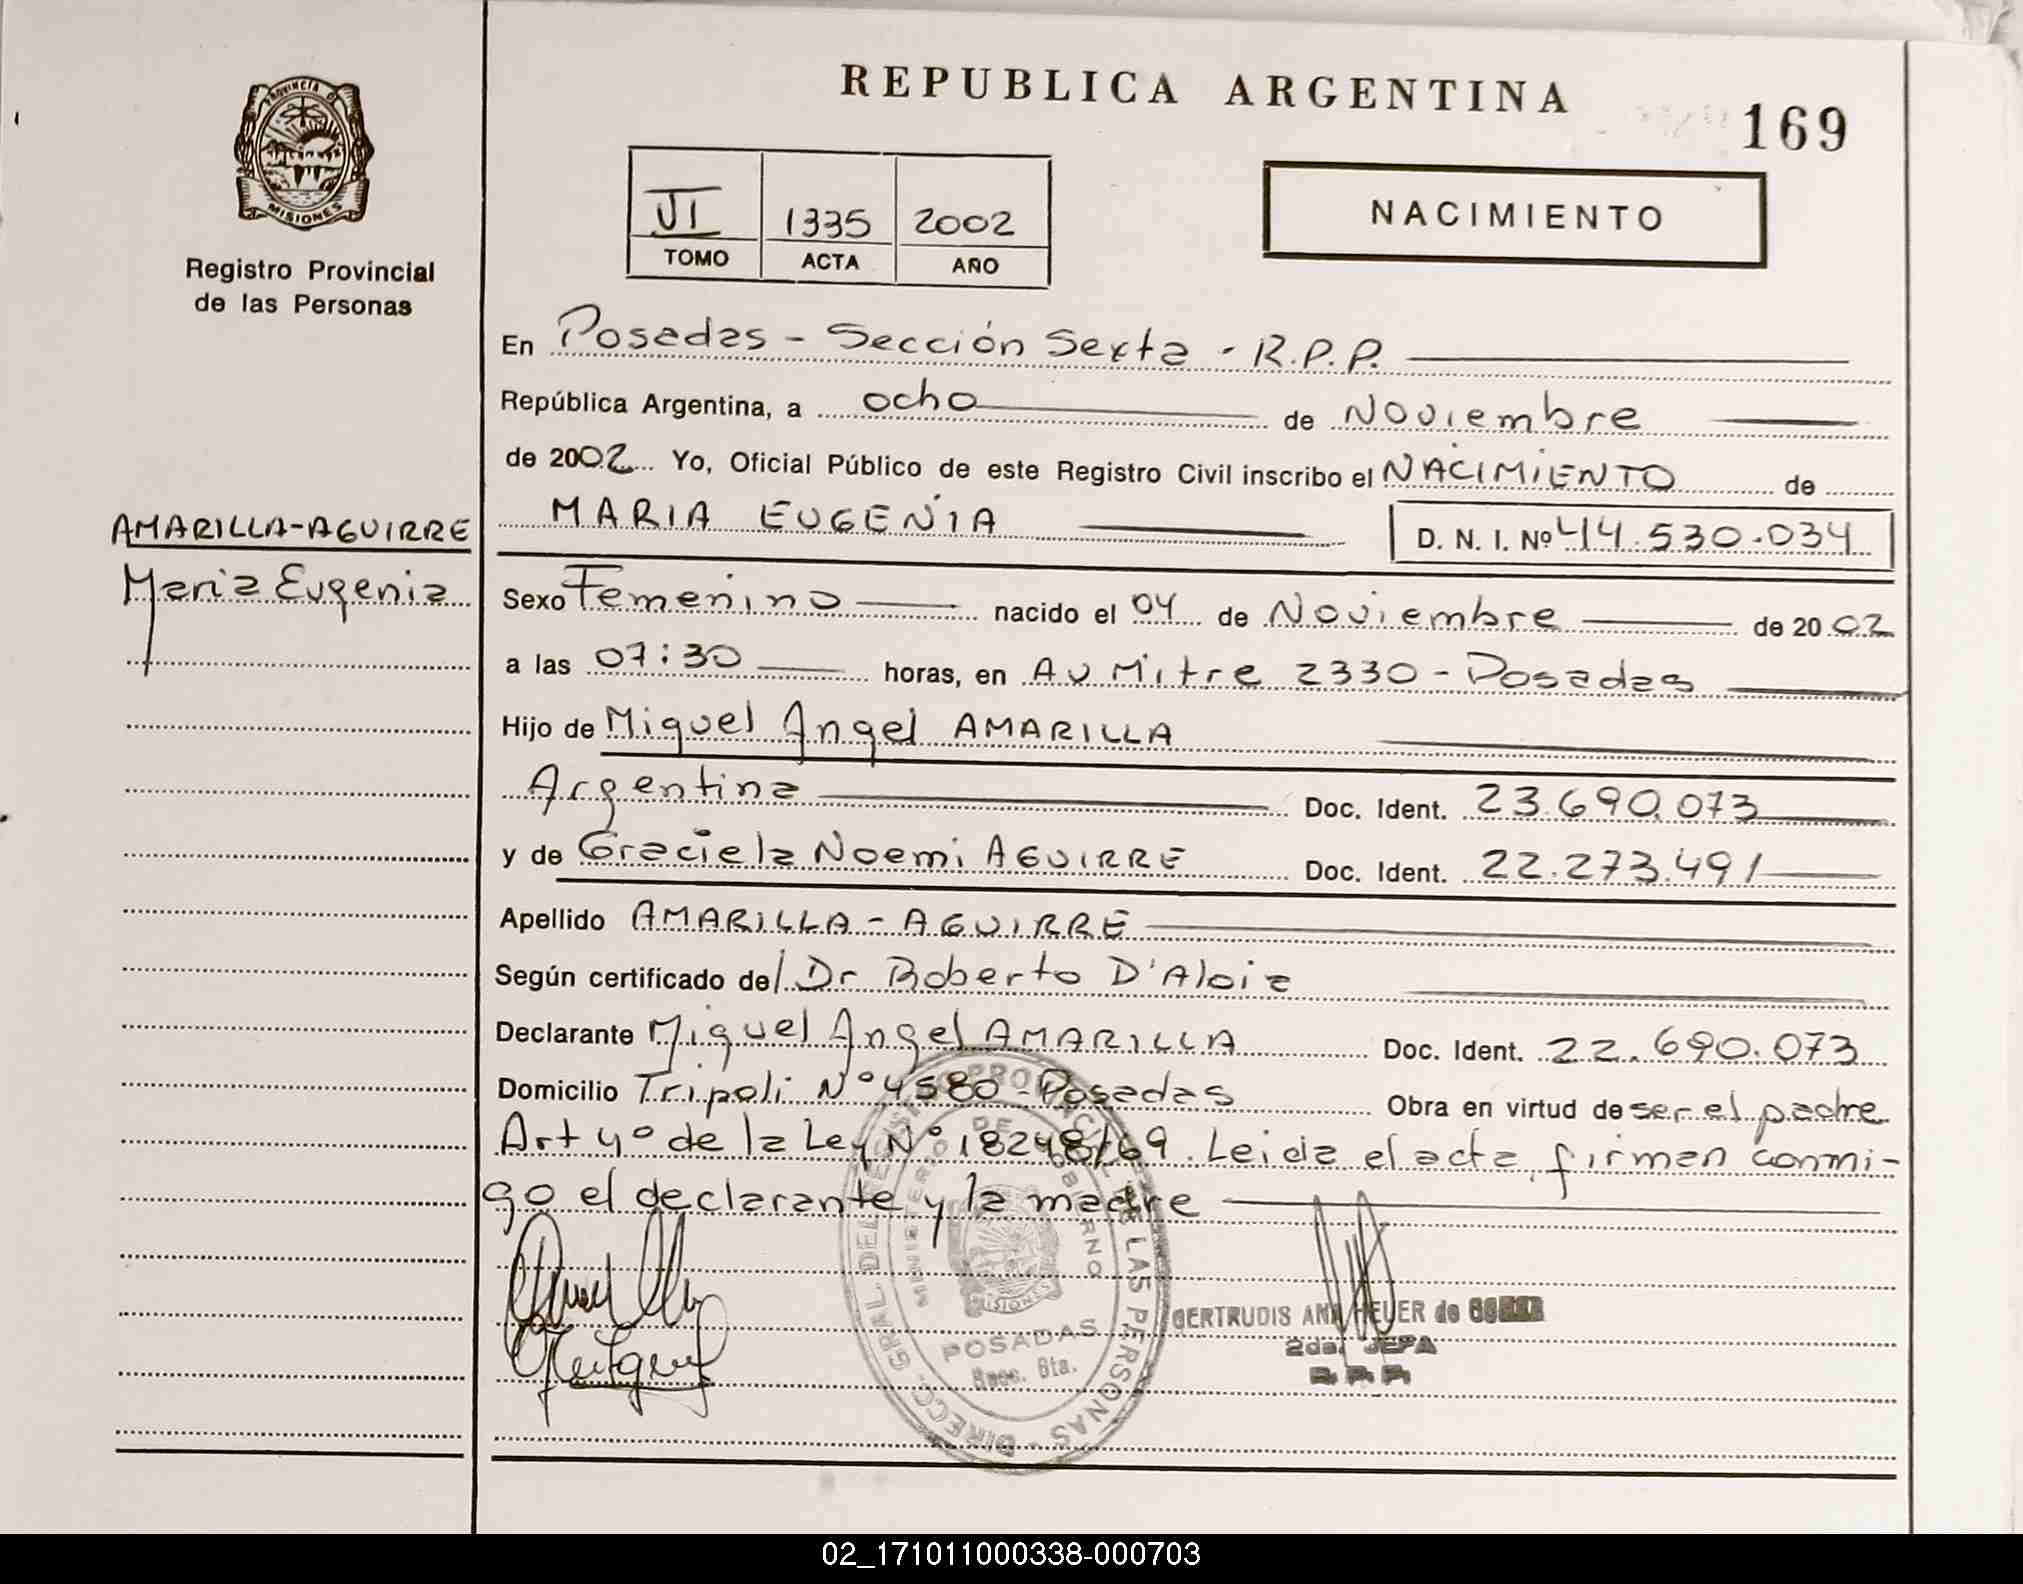 REPUBLICA ARGENTINA
169
PROVINCIA DE
MISIONES
Registro Provincial
de las Personas
VI 1335 2002
TOMO ACTA AÑO
NACIMIENTO
En Posadas - Sección Sexta - R.P.P.
República Argentina, a ocho de Noviembre
de 2002 Yo, Oficial Público de este Registro Civil inscribo el NACIMIENTO de
MARIA EUGENIA D. N. I. Nº 44.530.034
AMARILLA-AGUIRRE
Maria Eugenia
Sexo Femenino nacido el 04 de Noviembre de 2002
a las 07:30 horas, en Av Mitre 2330 - Posadas
Hijo de Miguel Angel AMARILLA
Argentina Doc. Ident. 23.690.073
y de Graciela Noemi AGUIRRE Doc. Ident. 22.273.491
Apellido AMARILLA - AGUIRRE
Según certificado del Dr Roberto D'Aloia
Declarante Miguel Angel AMARILLA Doc. Ident. 22.690.073
Domicilio Tripoli Nº 4580 - Posadas Obra en virtud de ser el padre
Art 4º de la Ley Nº 18248/69. Leida el acta, firman conmi-
go el declarante y la madre
DIRECC. GRAL. DEL REGISTRO PROVINCIAL DE LAS PERSONAS
MINISTERIO DE GOBIERNO
MISIONES
POSADAS
Secc. 6ta.
GERTRUDIS ANA HEUER de
2da. JEFA
R.P.P.
02_171011000338-000703